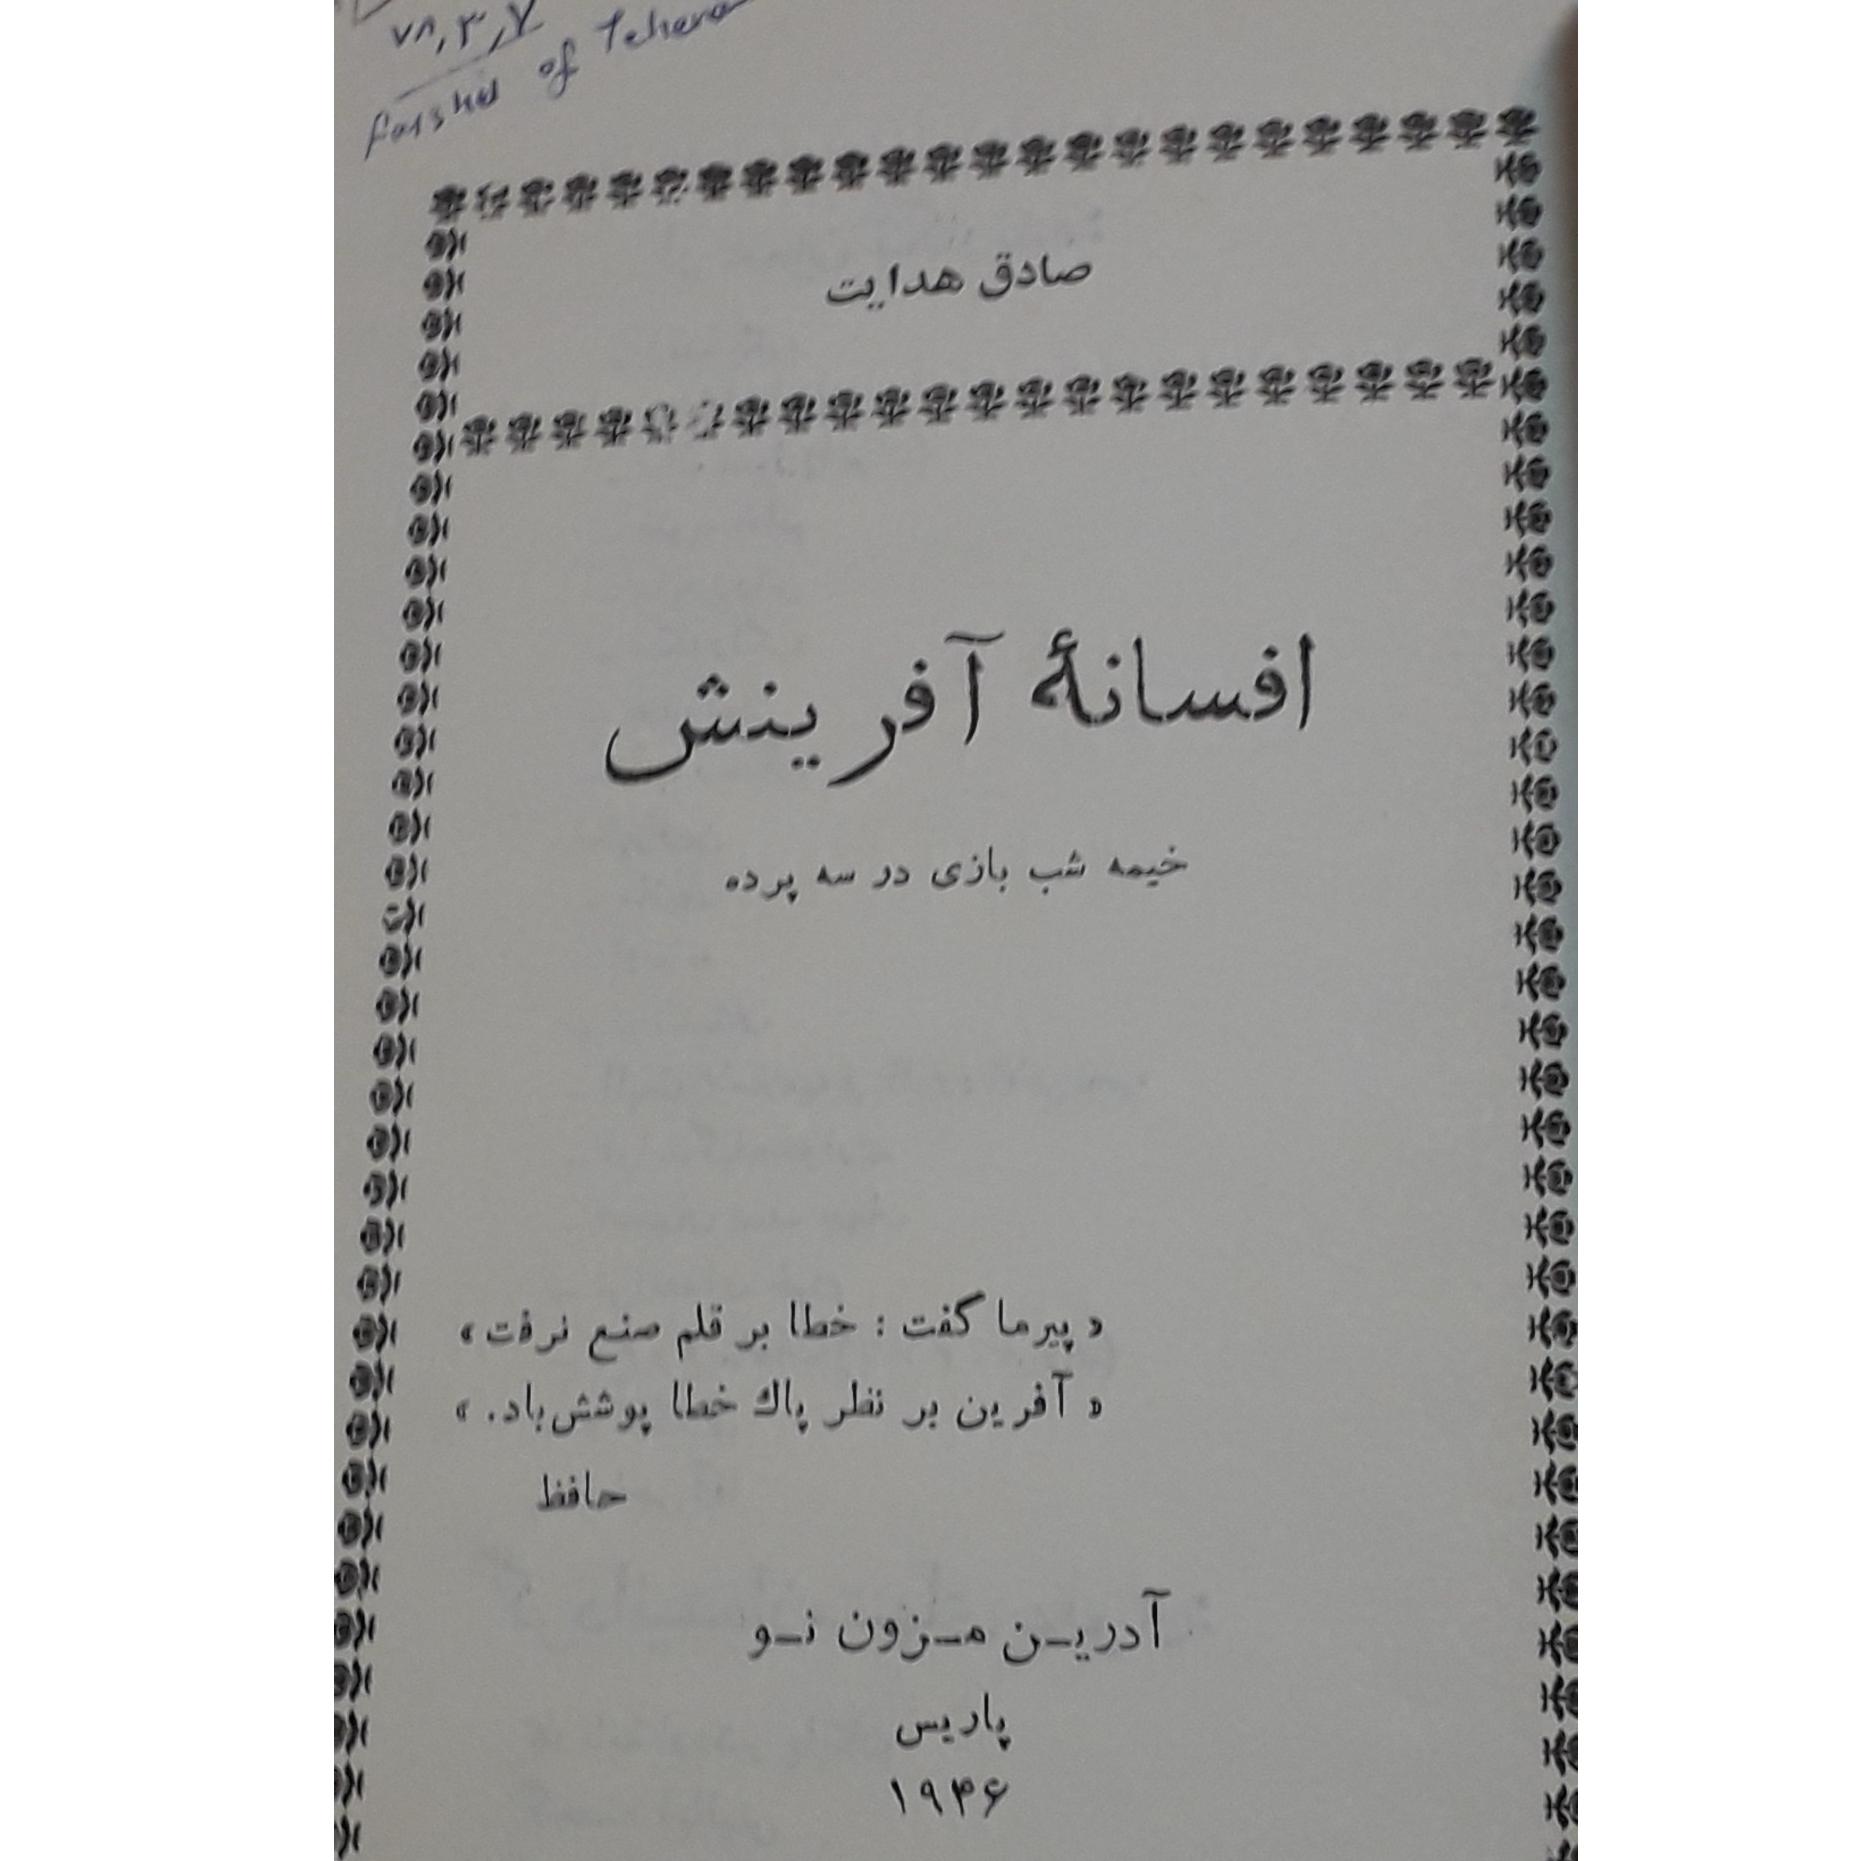 ۷۸,۳,۷
of Tehera
صادق هدایت
افسانهٔ آفرینش
خیمه شب بازی در سه پرده
« پیر ما گفت : خطا بر قلم صنع نرفت »
« آفرین بر نظر پاك خطا پوشش باد. »
حافظ
آدریـن مـزون نـو
پاریس
۱۹۴۶